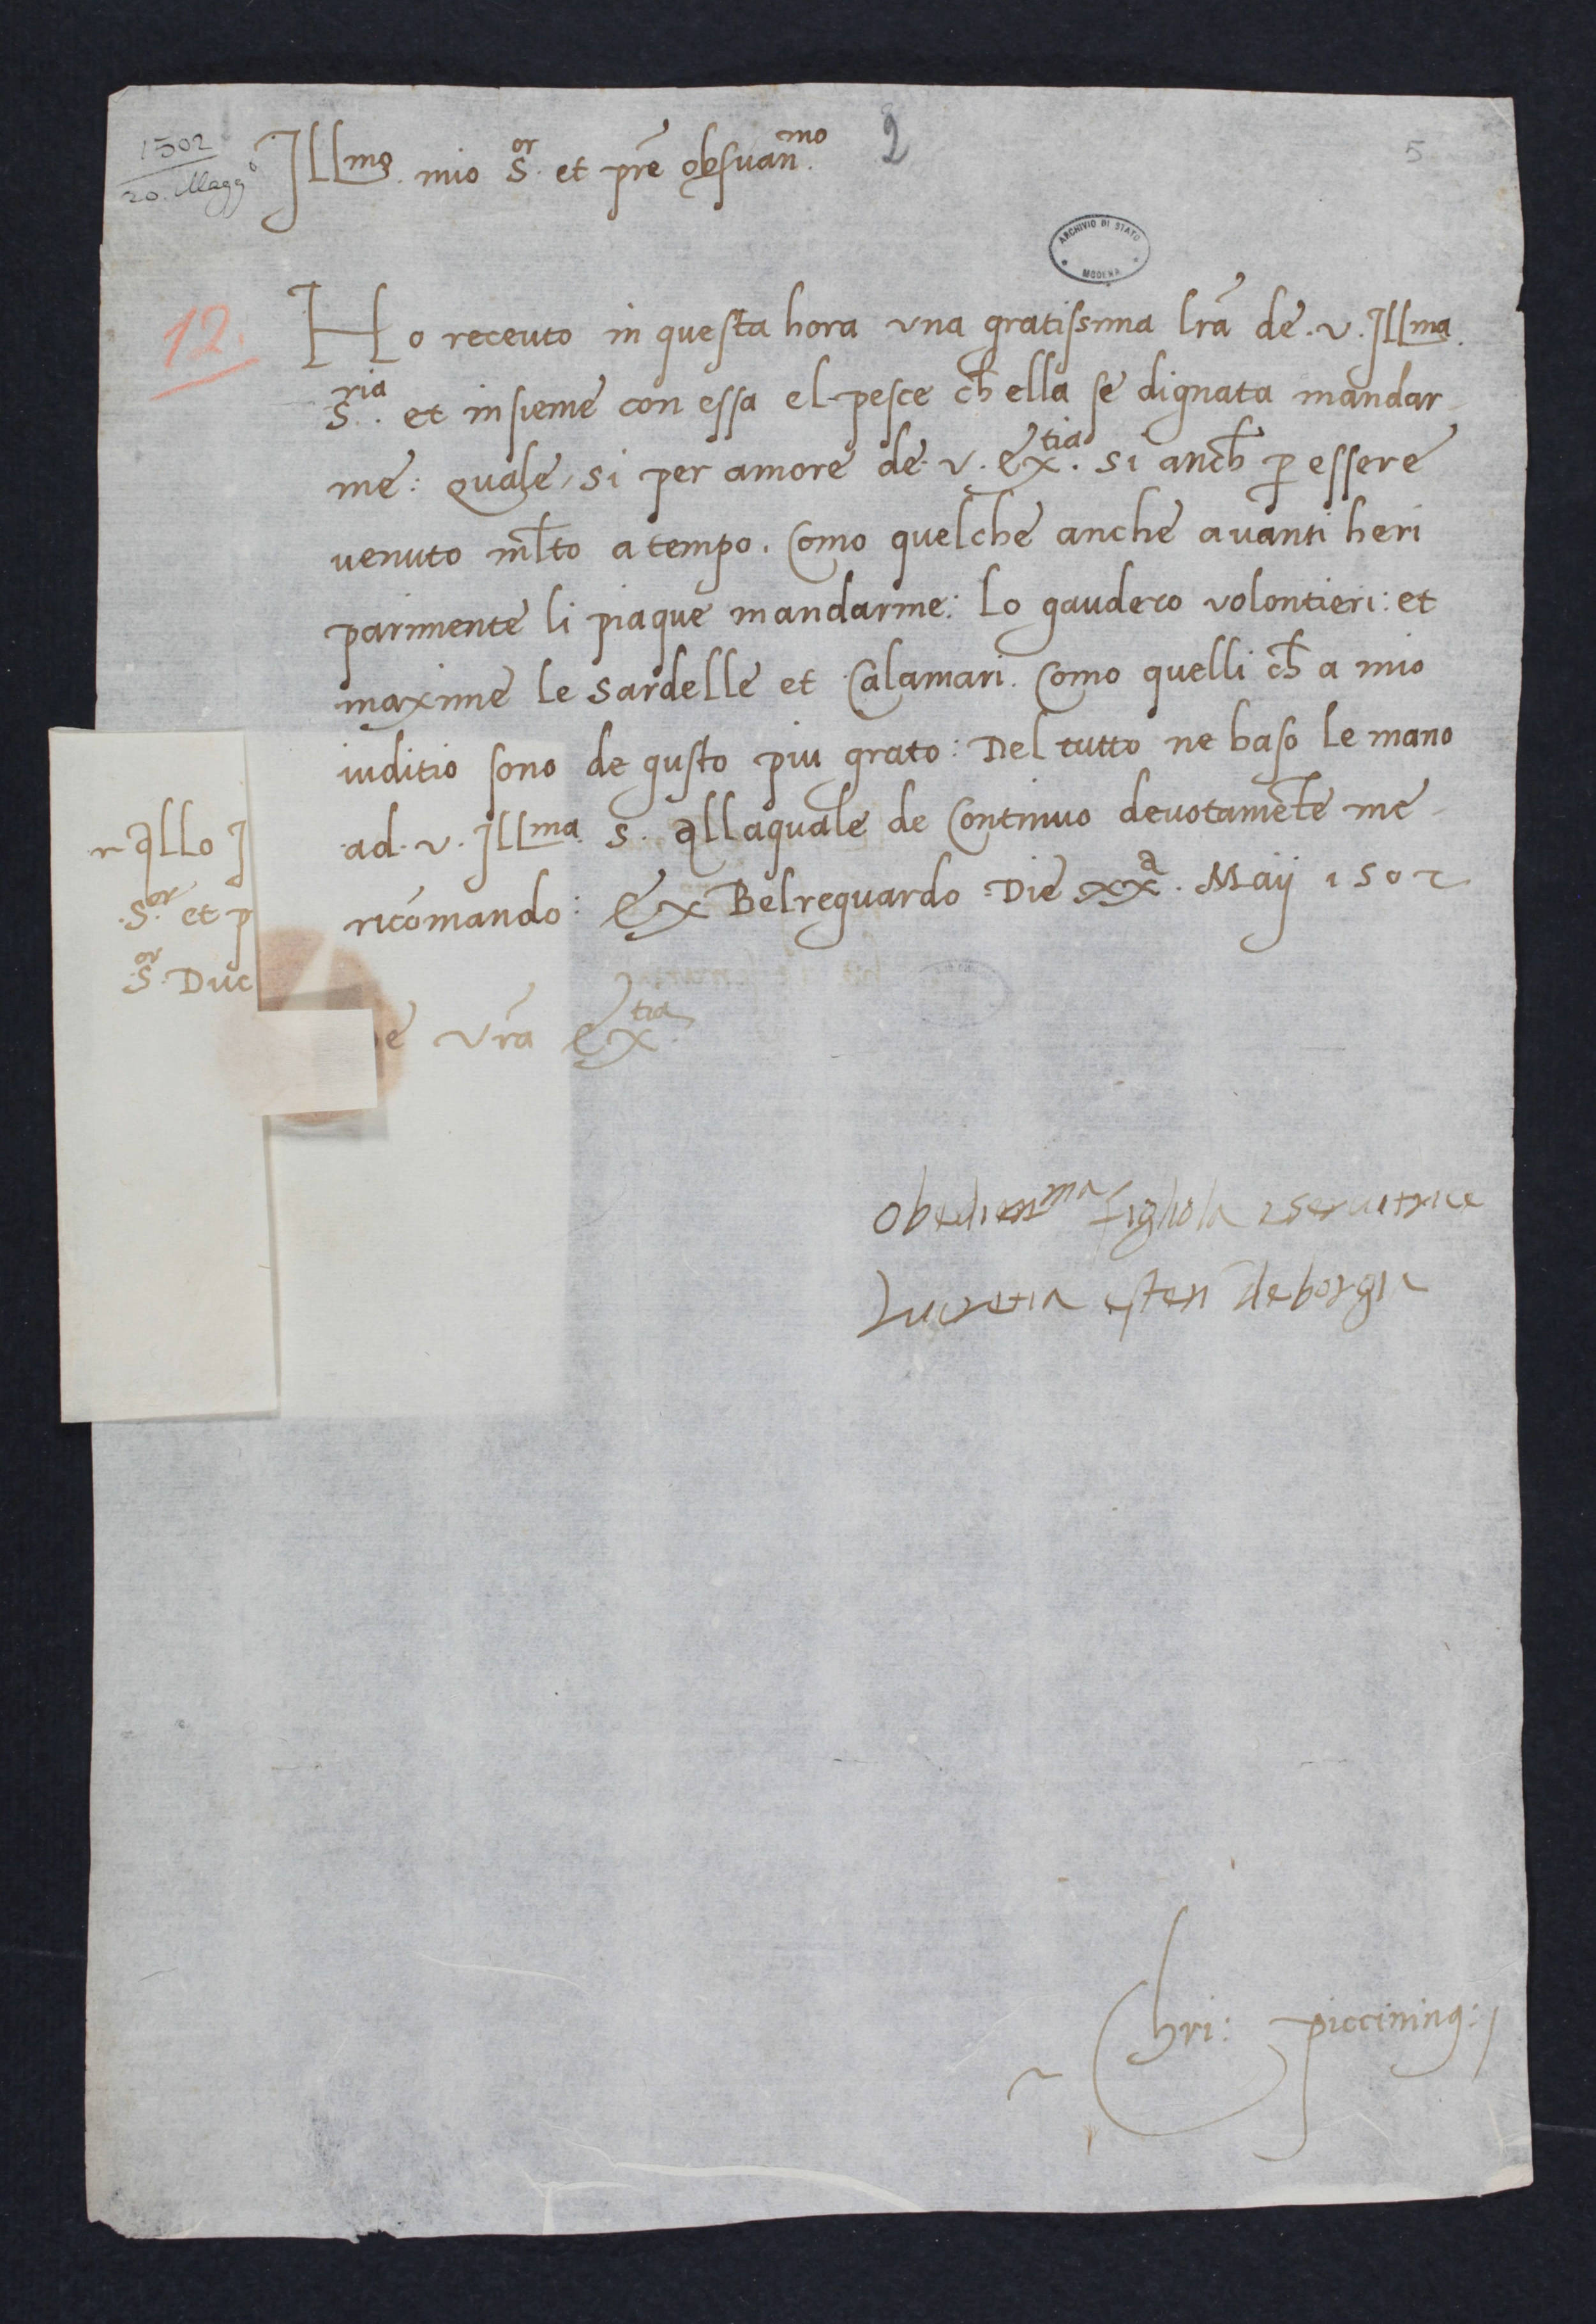 1502
20. Maggo
Illmo. mio Sor. et pre obsuanmo.
2
5
ARCHIVIO DI STATO
MODENA
12.
Ho receuto in questa hora vna gratissima lra de .v. Illma.
Sria. et insieme con essa el pesce ch ella se dignata mandar
me: quale, si per amore de .v. Extia. si anch p essere
uenuto mlto a tempo. Como quelche anche auanti heri
parimente li piaque mandarme: Lo gaudero volontieri: et
maxime le sardelle et Calamari. Como quelli ch a mio
iuditio sono de gusto piu grato: Del tutto ne baso le mano
ad .v. Illma. S. allaquale de Continuo deuotamete me
ricomando: Ex Belreguardo Die xxa. Maij 1502
allo I
Sor. et p
Sor. Duc
e Vra Extia.
Obedienma figliola e seruitrice
Lucretia esten de borgia
Chri: piccining: